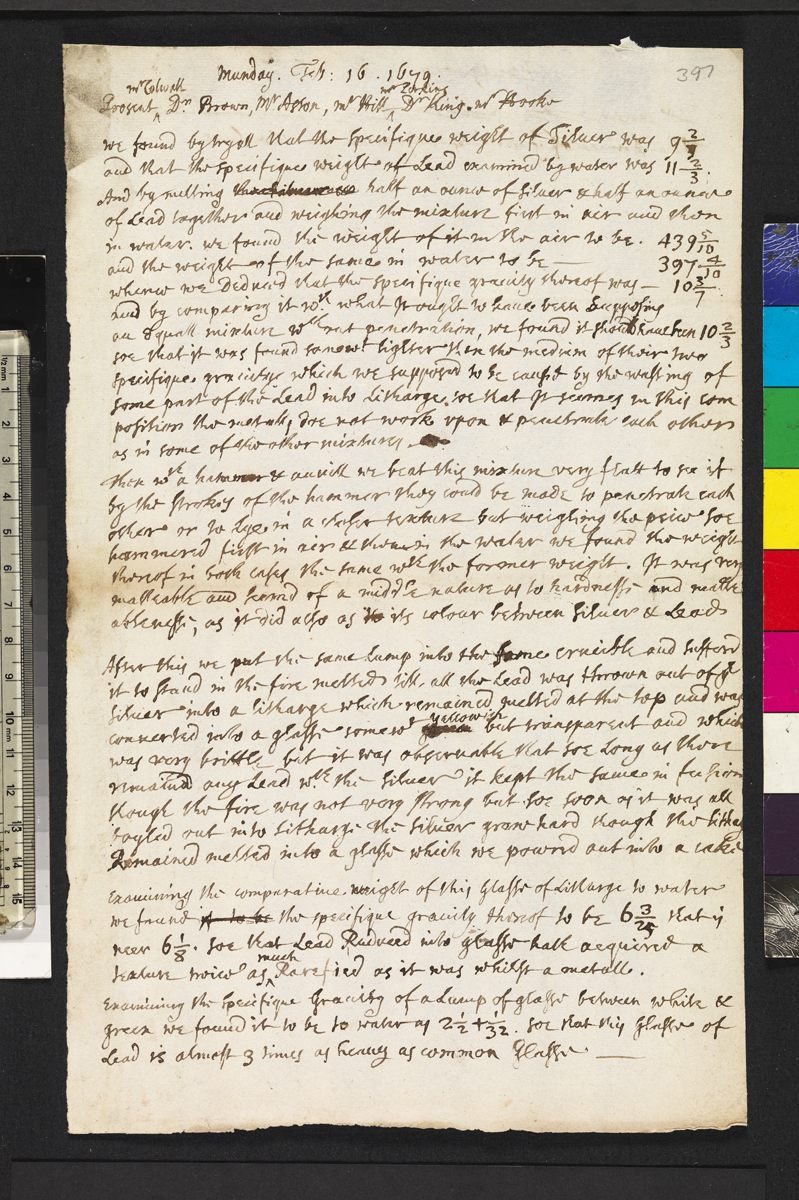 397
Munday. Feb: 16. 1679.
mr Colwall mr Perkins
Present ^ Dr. Brown, Mr Aston, mr Hill ^ Dr King. mr Hooke
we found by tryall that the specifique weight of Silver was 9 2/7
and that the specifique weight of Lead examined by water was 11 2/3.
And by melting half an ounce of Silver & half an ounce
of Lead together and weighing the mixture first in air and then
in water. we found the weight of it in the air to be. 439 5/10
and the weight of the same in water to be — 397 4/10
whence we Deduced that the specifique gravity thereof was — 10 3/7
And by comparing it wth. what It ought to have been Supposing
an Equall mixture wthout penetration, we found it should have been 10 2/3
soe that it was found somewt lighter then the medium of their two
specifique gravitys which we supposed to be caused by the wasting of
some part of the Lead into Litharge. soe that It seemes in this com
position the metalls doe not work upon & penetrate each other
as in some of the other mixtures.
Then wth a hammer & anvill we beat this mixture very flatt to see if
by the strokes of the hammer they could be made to penetrate each
other or to Lye in a closer texture but weighing the peice soe
hammered first in air & then in the water we found the weight
thereof in both cases the same wth the former weight. It was very
malleable and seemed of a middle nature as to hardnesse and malle
ablenesse, as it did also as to its colour between Silver & Lead
After this we put the same Lump into the same crucible and suffered
it to stand in the fire melted till all the Lead was thrown out of ye
Silver into a Litharge which remained melted at the top and was
converted into a glasse somewt yellowish but transparent and which
was very brittle but it was observable that soe Long as there
remained any Lead wth. the Silver it kept the same in fusion
though the fire was not very strong but soe soon as it was all
out into Litharge the Silver grew hard though the Litharg
Remained melted into a glasse which we powred out into a cake
Examining the comparative weight of this Glasse of Litharge to water
we found it to be the specifique gravity thereof to be 6 3/25 that is
neer 6 1/8. soe that Lead Reduced into glasse hath acquired a
texture twice as ^ much Rarefied as it was whilst a metall.
Examining the specifique Gravity of a Lump of glasse between white &
green we found it to be to water as 2 1/2 + 1/32. soe that this Glasse of
Lead is almost 3 times as heavy as common Glasse —
1/2 mm 1
2
3
4
5
6
7
8
9
10 mm
11
12
13
14
15